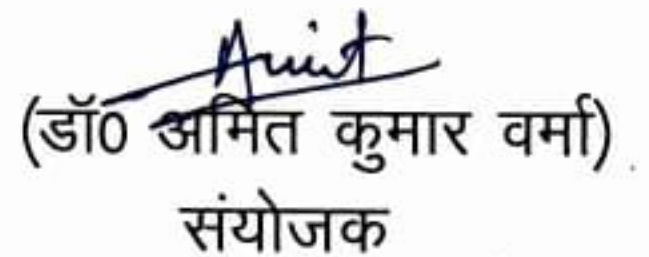 Amit
(डॉ0 अमित कुमार वर्मा)
संयोजक